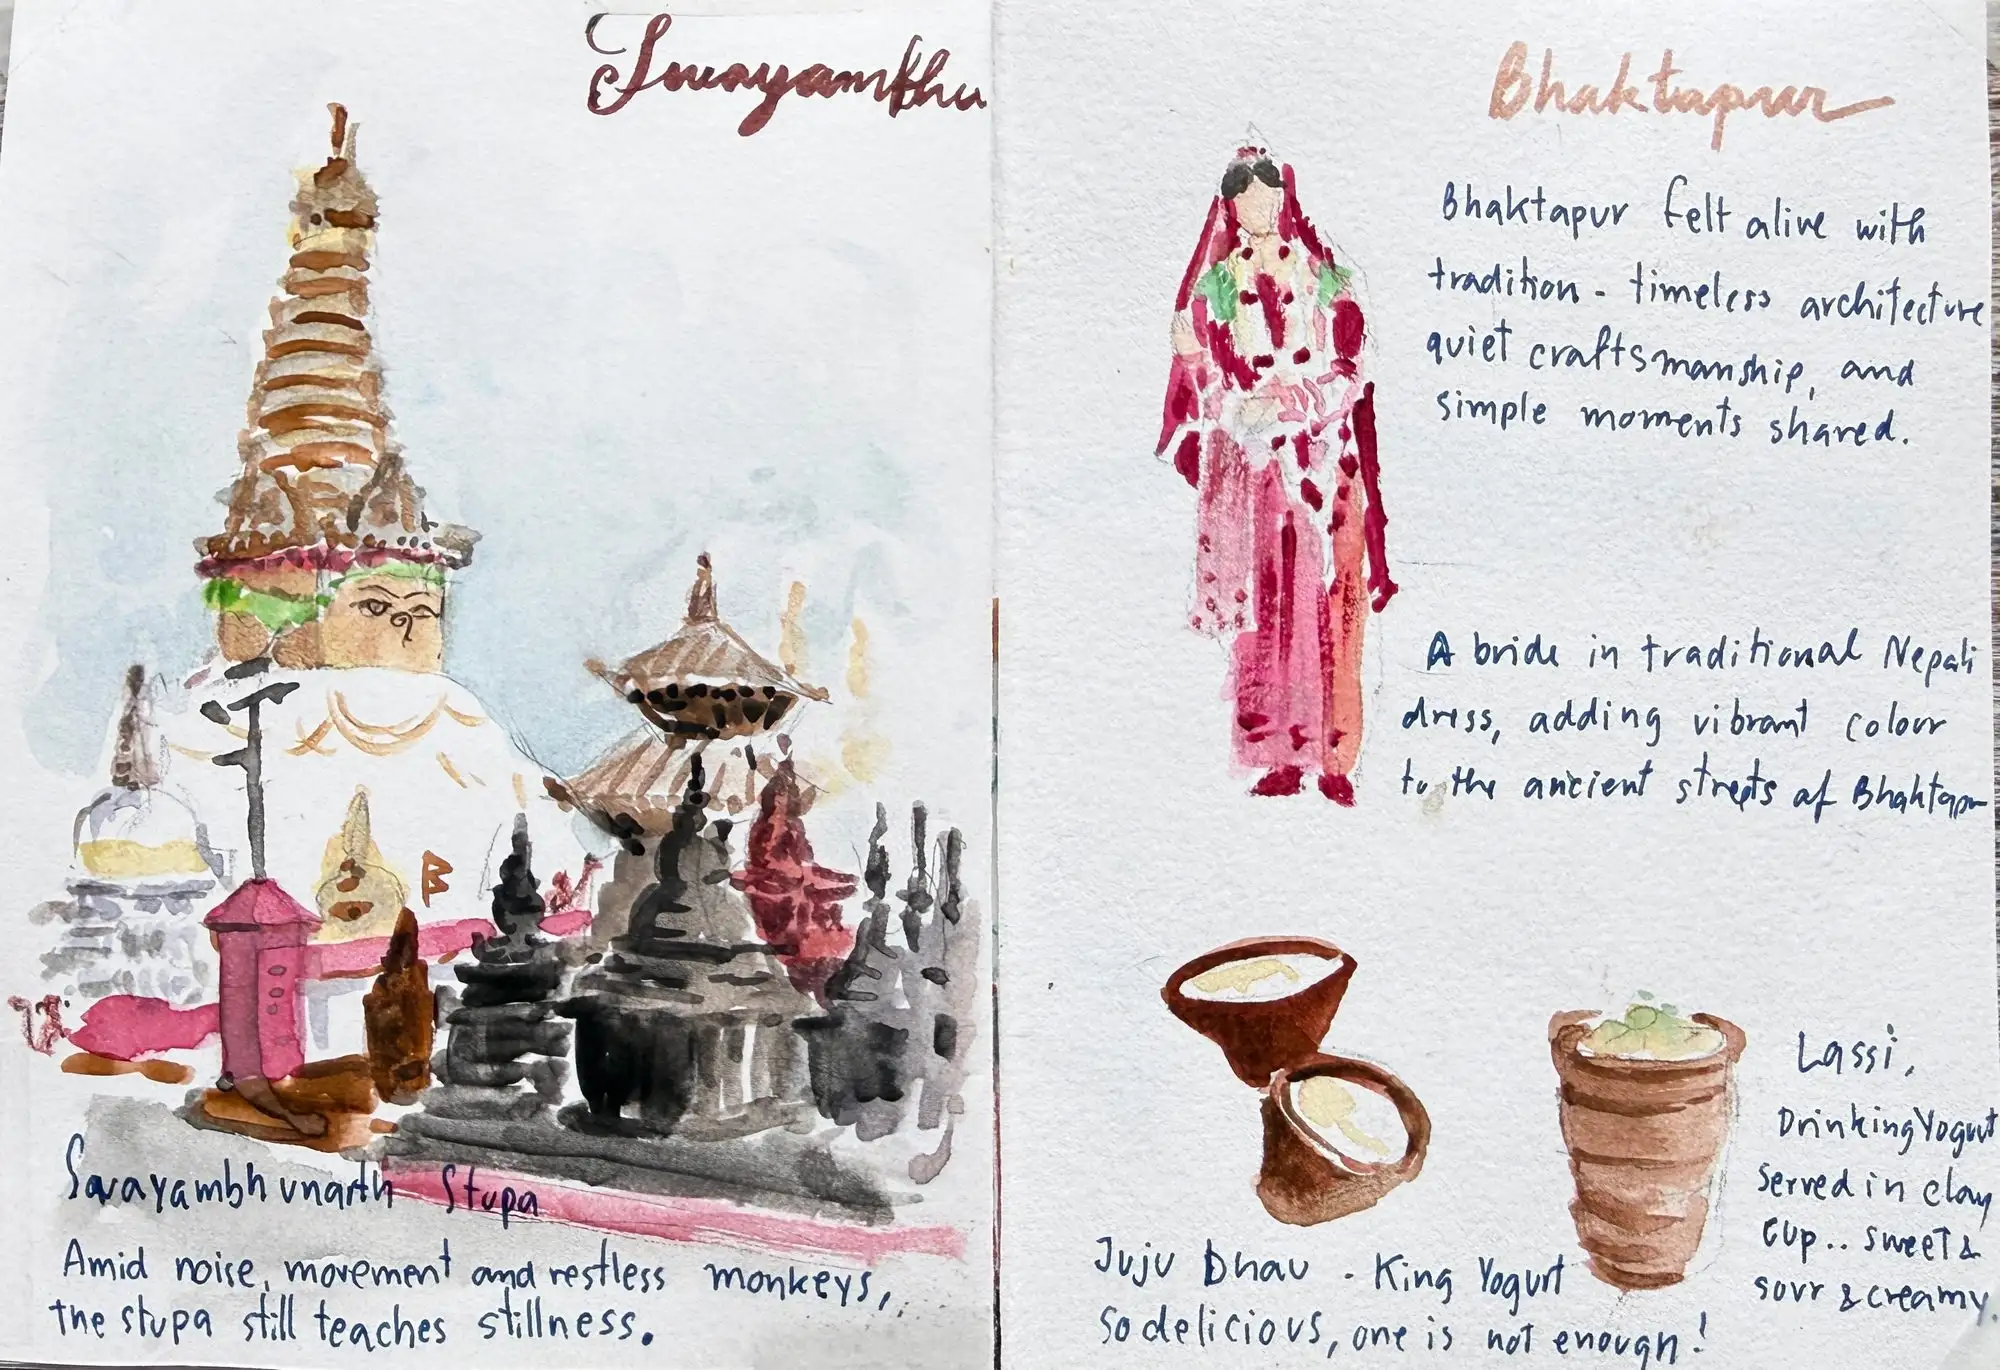 Swayambhu
Swayambhunarth Stupa
Amid noise, movement and restless monkeys,
the stupa still teaches stillness.
Bhaktapur
Bhaktapur felt alive with
tradition - timeless architecture
quiet craftsmanship, and
simple moments shared.
A bride in traditional Nepali
dress, adding vibrant colour
to the ancient streets of Bhaktapur
Juju Dhau - King Yogurt
So delicious, one is not enough!
Lassi,
Drinking Yogurt
served in clay
cup.. sweet &
sour & creamy.